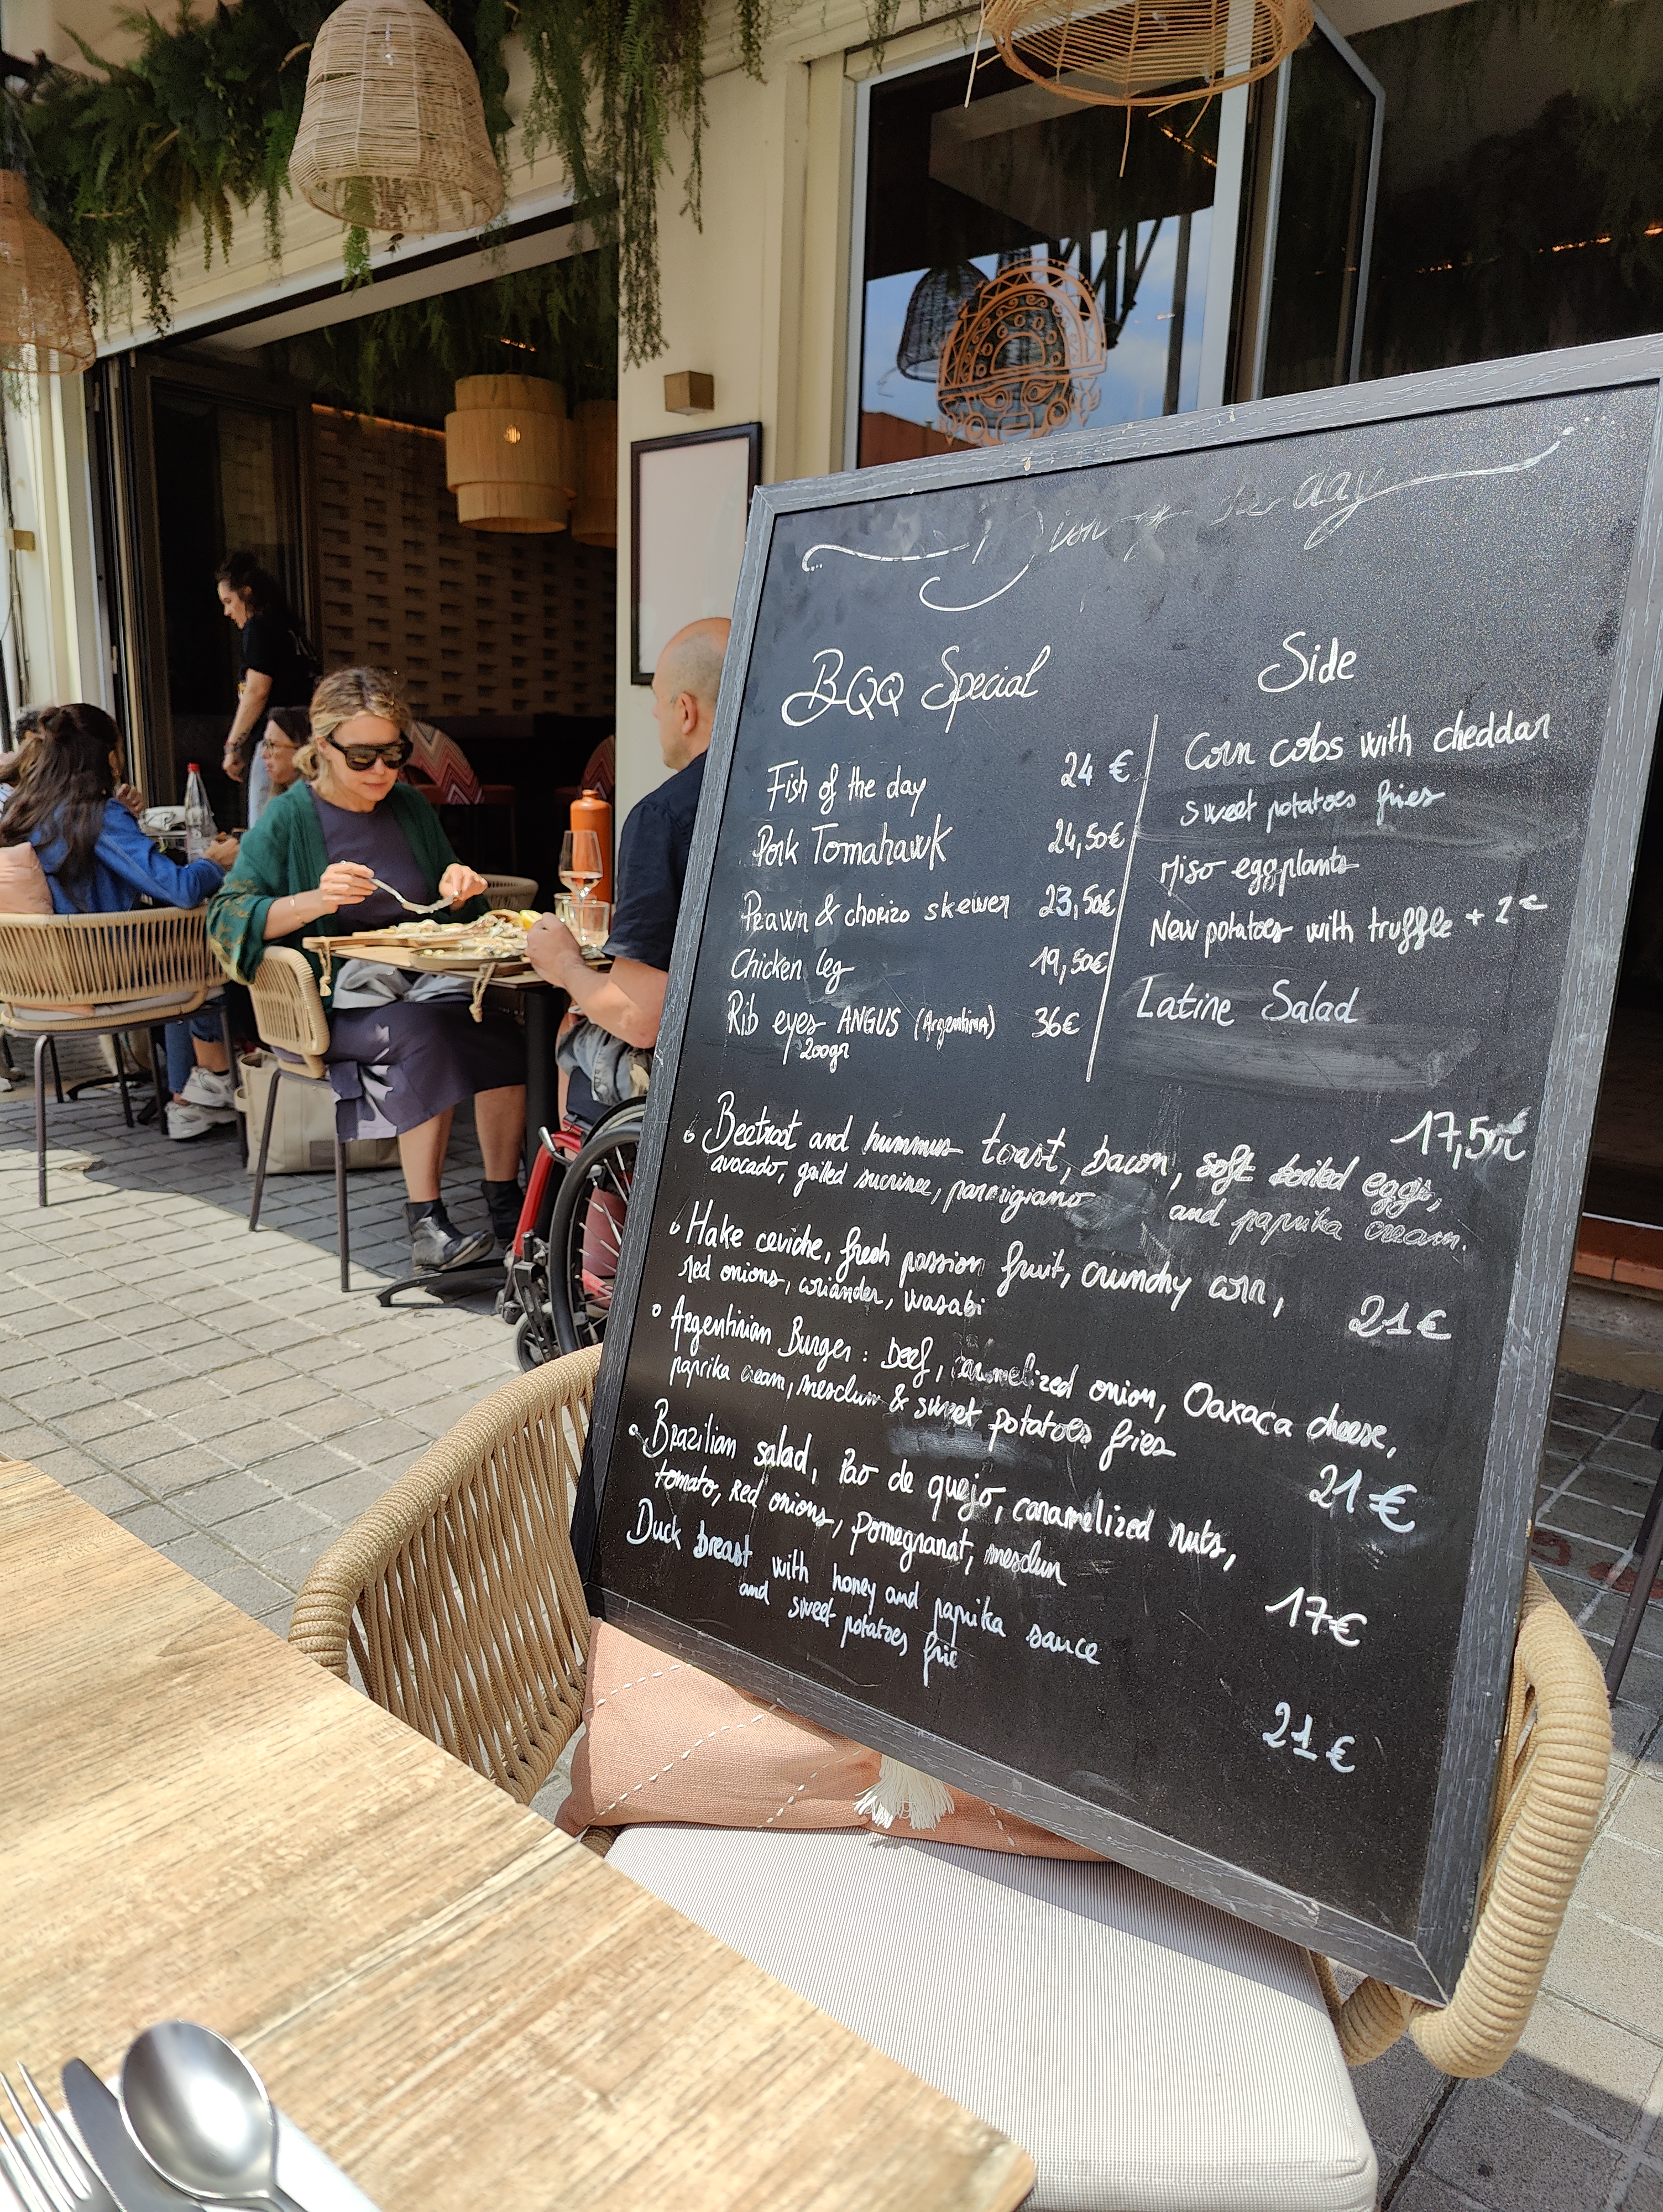 of the day
BQQ Special
Fish of the day 24 €
Pork Tomahawk 24,50€
Prawn & chorizo skewer 23,50€
Chicken leg 19,50€
Rib eyes ANGUS (Argentina) 36€
200gr
Side
Corn cobs with cheddar
Sweet potatoes fries
Miso eggplants
New potatoes with truffle + 2€
Latine Salad
Beetroot and hummus toast, bacon, soft boiled eggs, 17,50€
avocado, grilled sucrine, parmigiano and paprika cream.
Hake ceviche, fresh passion fruit, crunchy corn,
red onions, coriander, wasabi 21€
Argentinian Burger : beef, caramelized onion, Oaxaca cheese,
paprika cream, mesclun & sweet potatoes fries
21€
Brazilian salad, Pao de quejo, caramelized nuts,
tomato, red onions, pomegranat, mesclun
17€
Duck breast with honey and paprika sauce
and sweet potatoes frie
21€